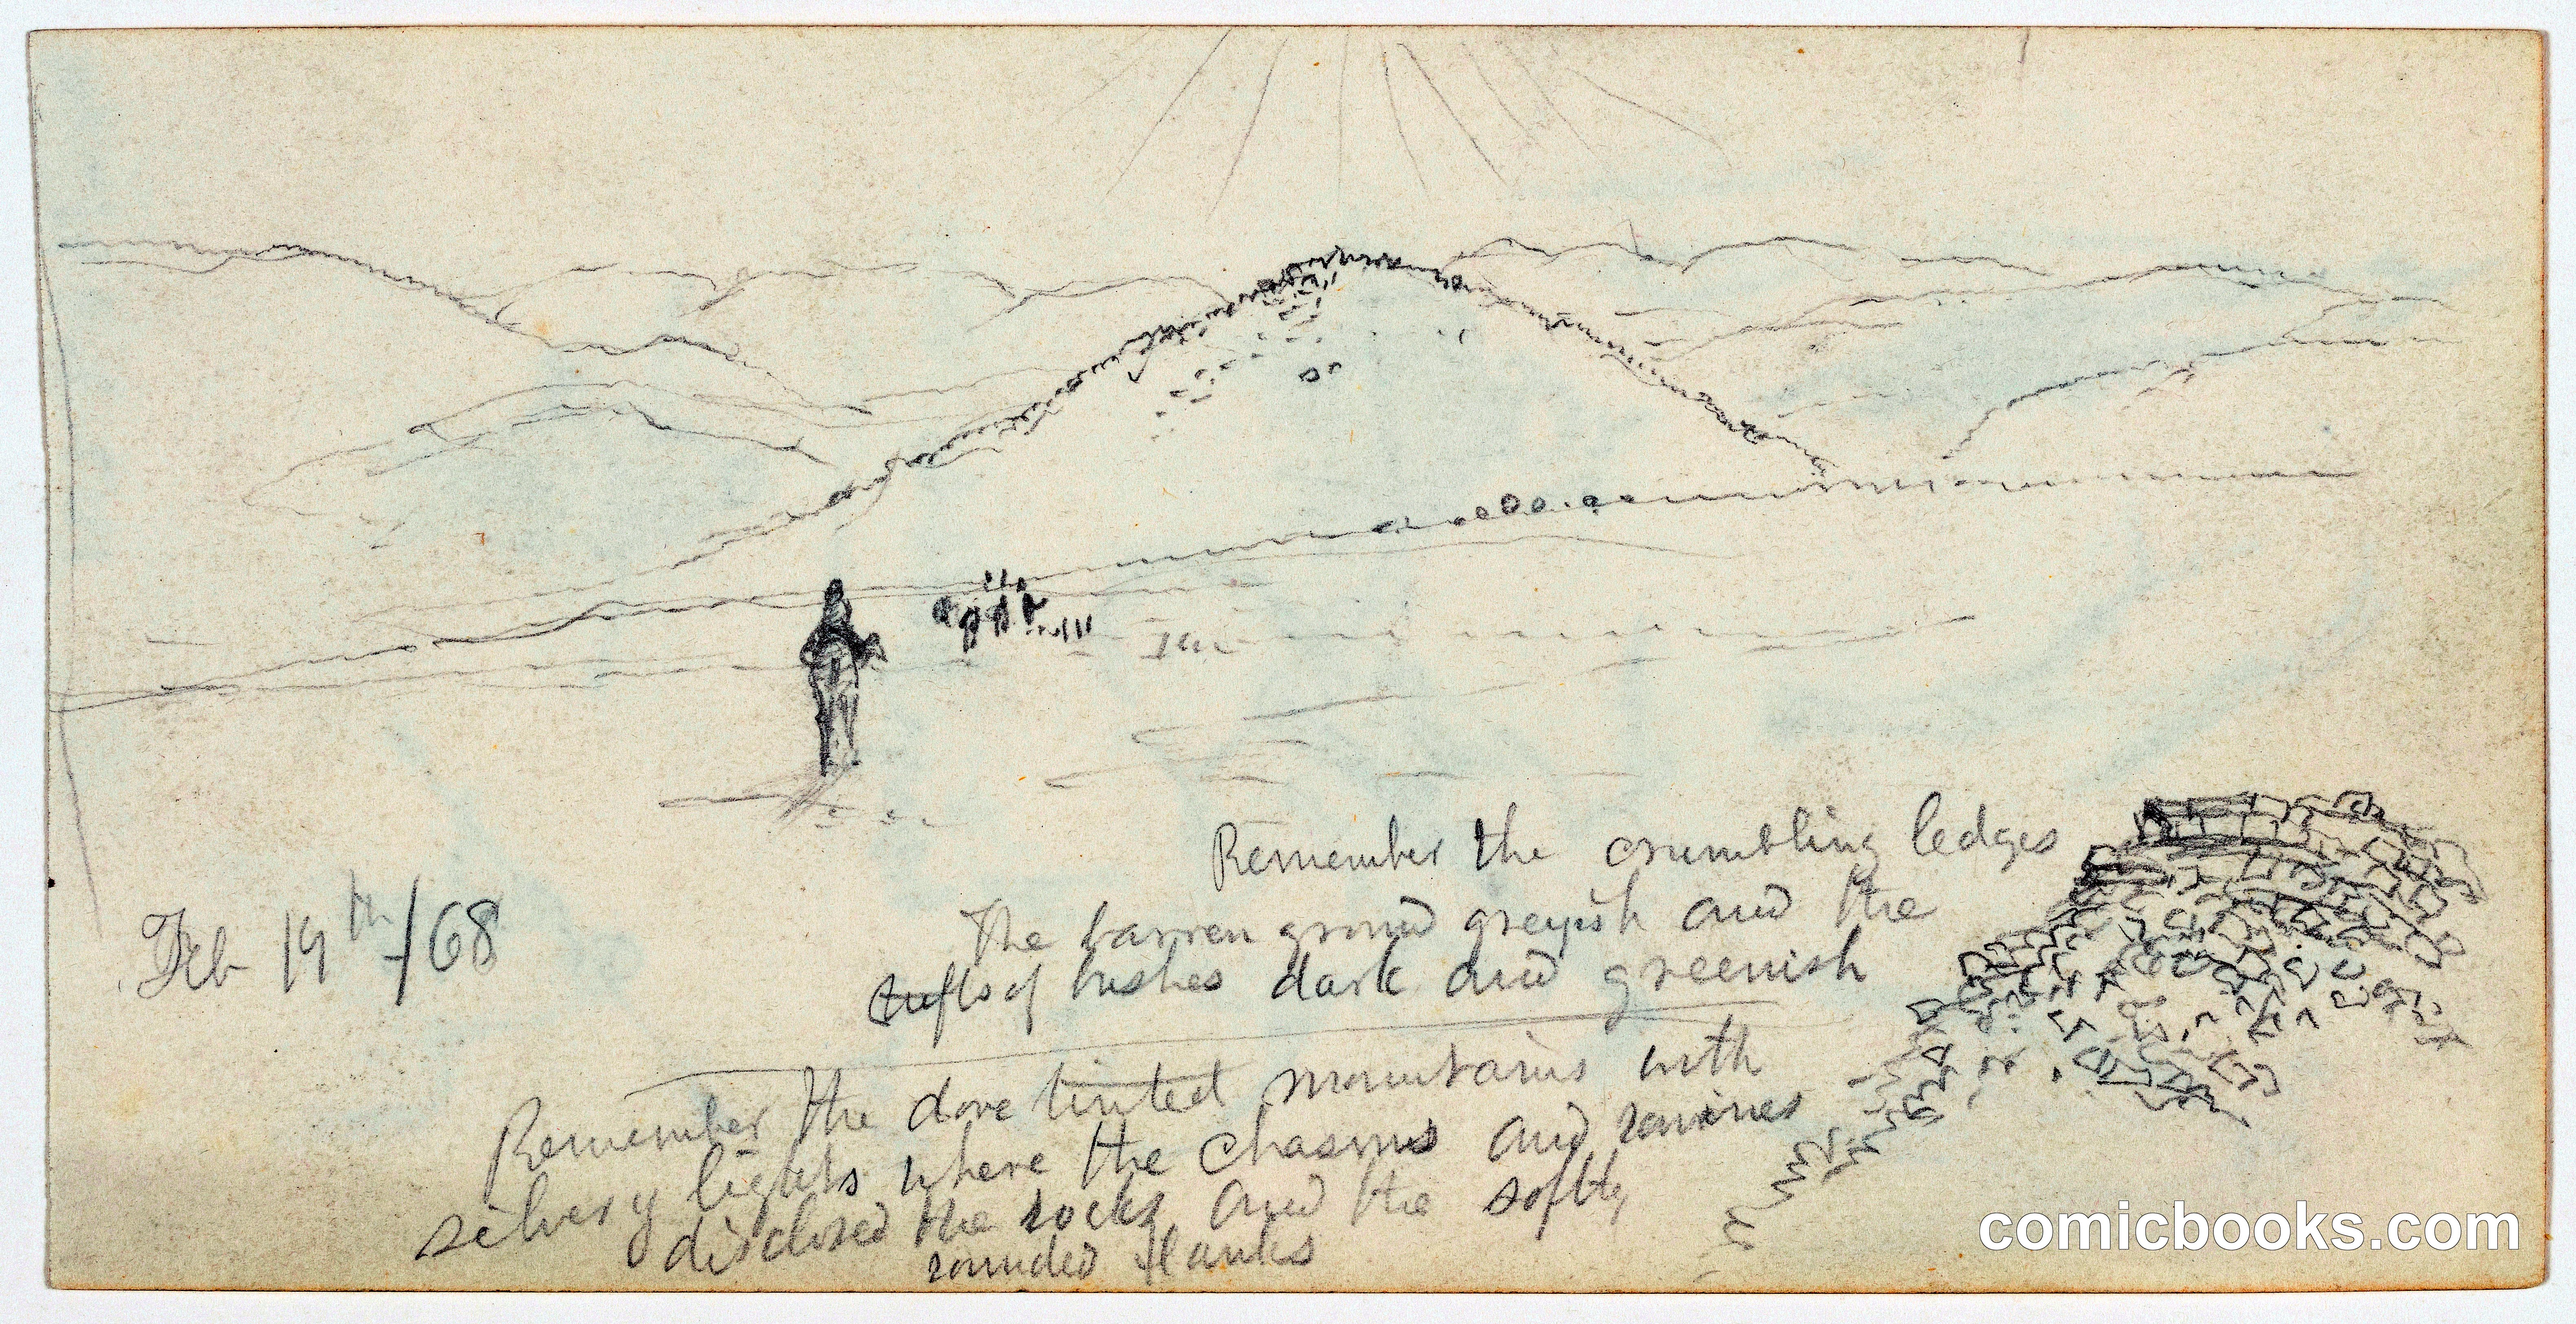 Remember the crumbling ledges
The barren ground greyish and the
tufts of bushes dark and greenish
Feb 19th /68
Remember the dove tinted mountains with
silvery lights where the chasms and ravines
disclosed the rocks and the softly
rounded flanks
comicbooks.com